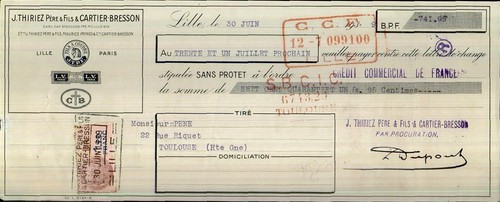 J. THIRIEZ PÈRE & FILS & CARTIER-BRESSON
LILLE PARIS
L.V. L.V.
C B
Lille, le 30 JUIN
B.P.F. 741.95
C.C.P.
12-7 099100
LILLE
Au TRENTE ET UN JUILLET PROCHAIN veuillez payer contre cette lettre de change
stipulée SANS PROTET à l'ordre CRÉDIT COMMERCIAL DE FRANCE
la somme de SEPT CENT QUARANTE ET UN fs. 95 Centimes
TOULOUSE
TIRÉ
Monsieur PERE
22 Rue Riquet
TOULOUSE (Hte Gne)
DOMICILIATION
J. THIRIEZ PÈRE & FILS & CARTIER-BRESSON
PAR PROCURATION,
Dupont
J. THIRIEZ PÈRE & FILS
& CARTIER-BRESSON
30 JUIN
LILLE